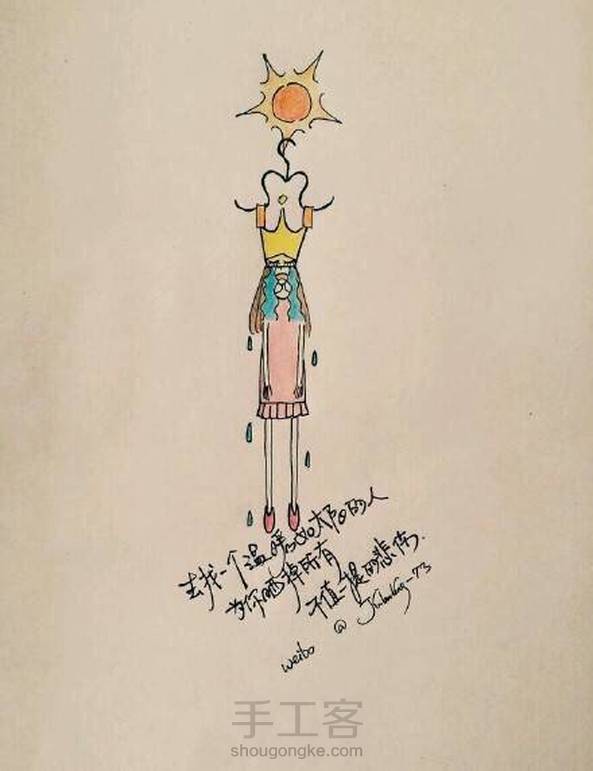 去找一个温暖如太阳的人
为你晒掉所有
不值一提的悲伤.
weibo @
手工客
shougongke.com